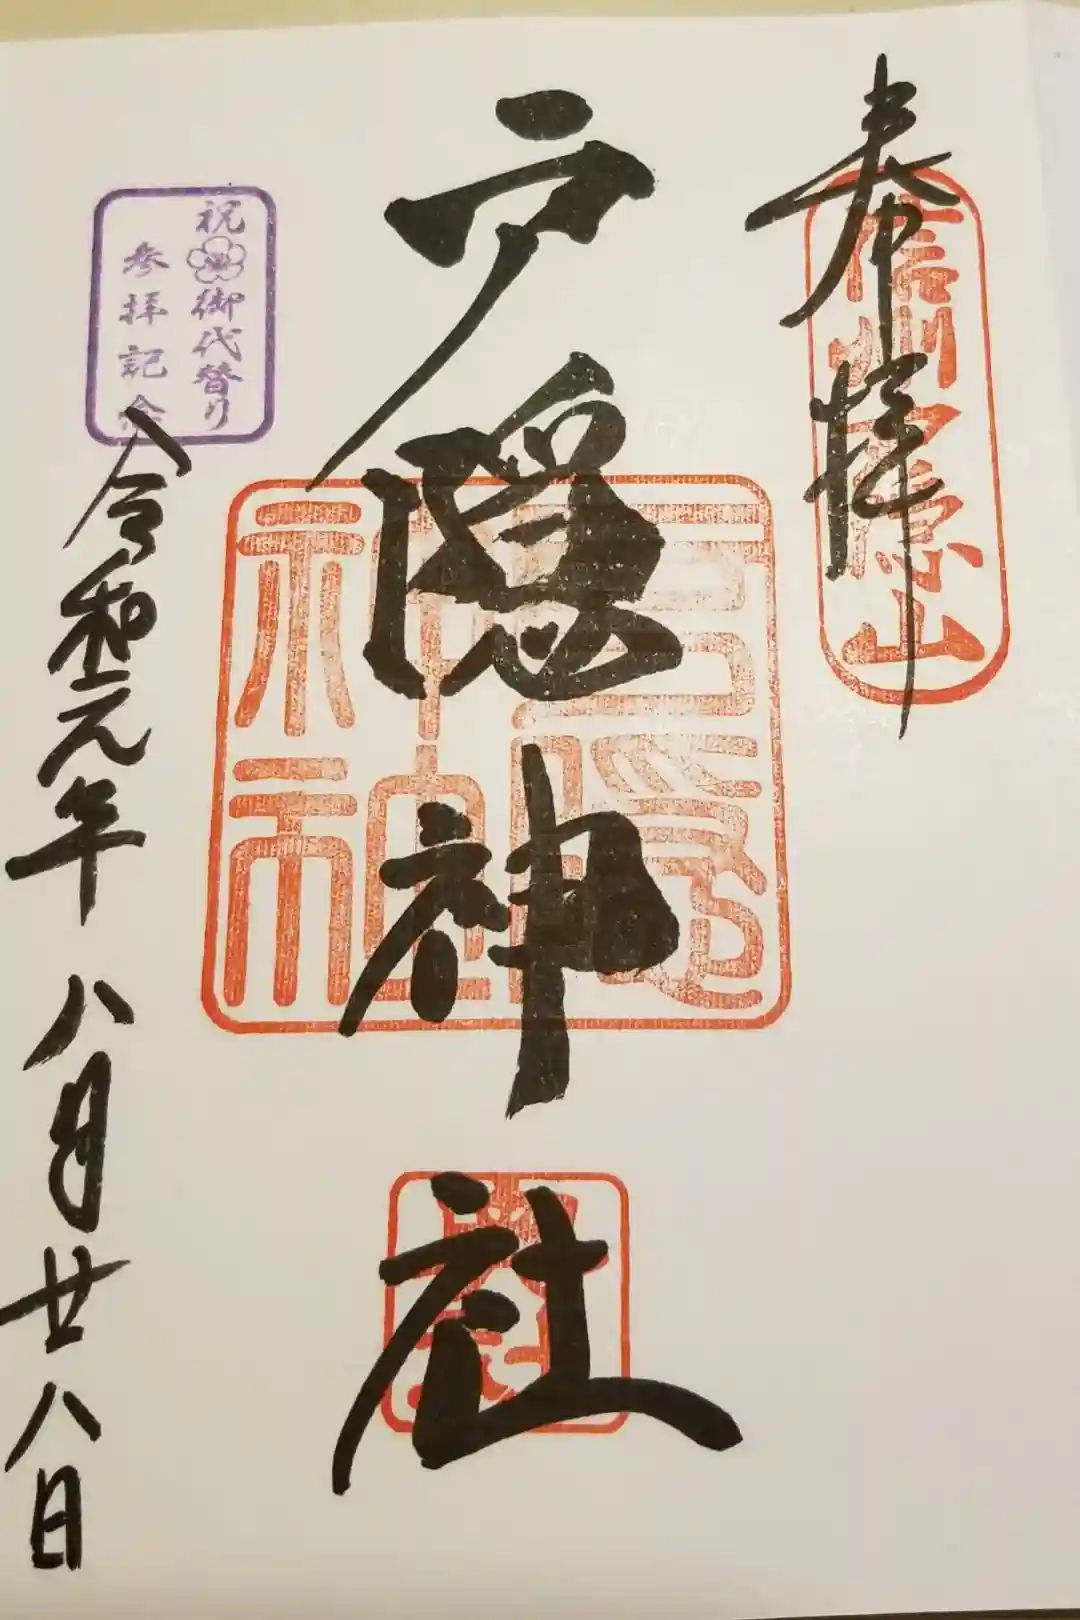 奉拝
信州戸隠山
戸隠神社
戸隠神社
祝御代替り
参拝記念
令和元年八月廿八日